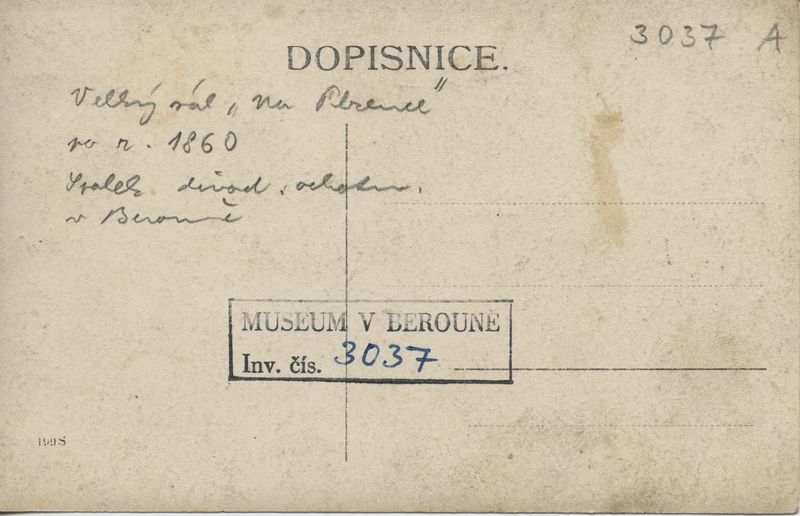 3037 A
DOPISNICE.
Velký sál „Na
po r. 1860
Spolek divad. ochotn.
v Berouně
MUSEUM V BEROUNĚ
Inv. čís. 3037